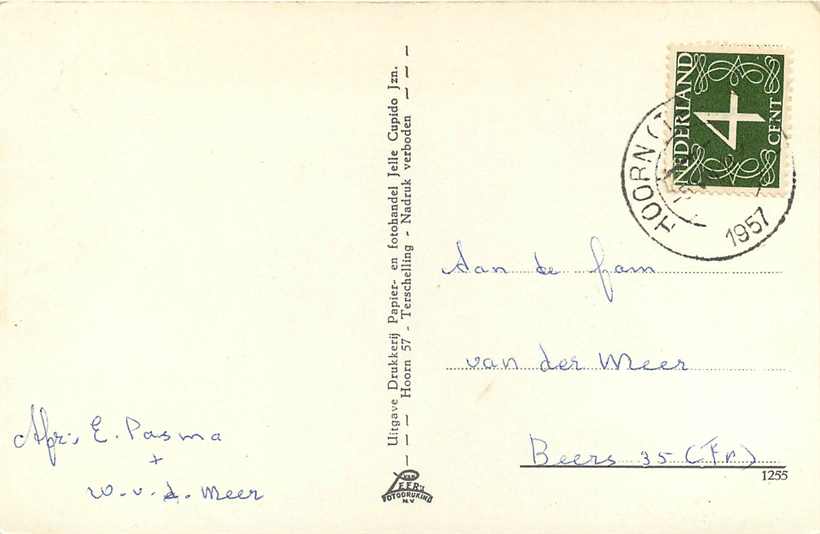 NEDERLAND
4
CENT
HOORN (T
1957
Aan de fam
van der Meer
Beers 35 (Fr)
1255
Uitgave Drukkerij Papier- en fotohandel Jelle Cupido Jzn.
Hoorn 57 - Terschelling - Nadruk verboden
Afz: E. Pasma
+
W. v. d. Meer
VAN
LEER'S
FOTODRUKIND
N.V.